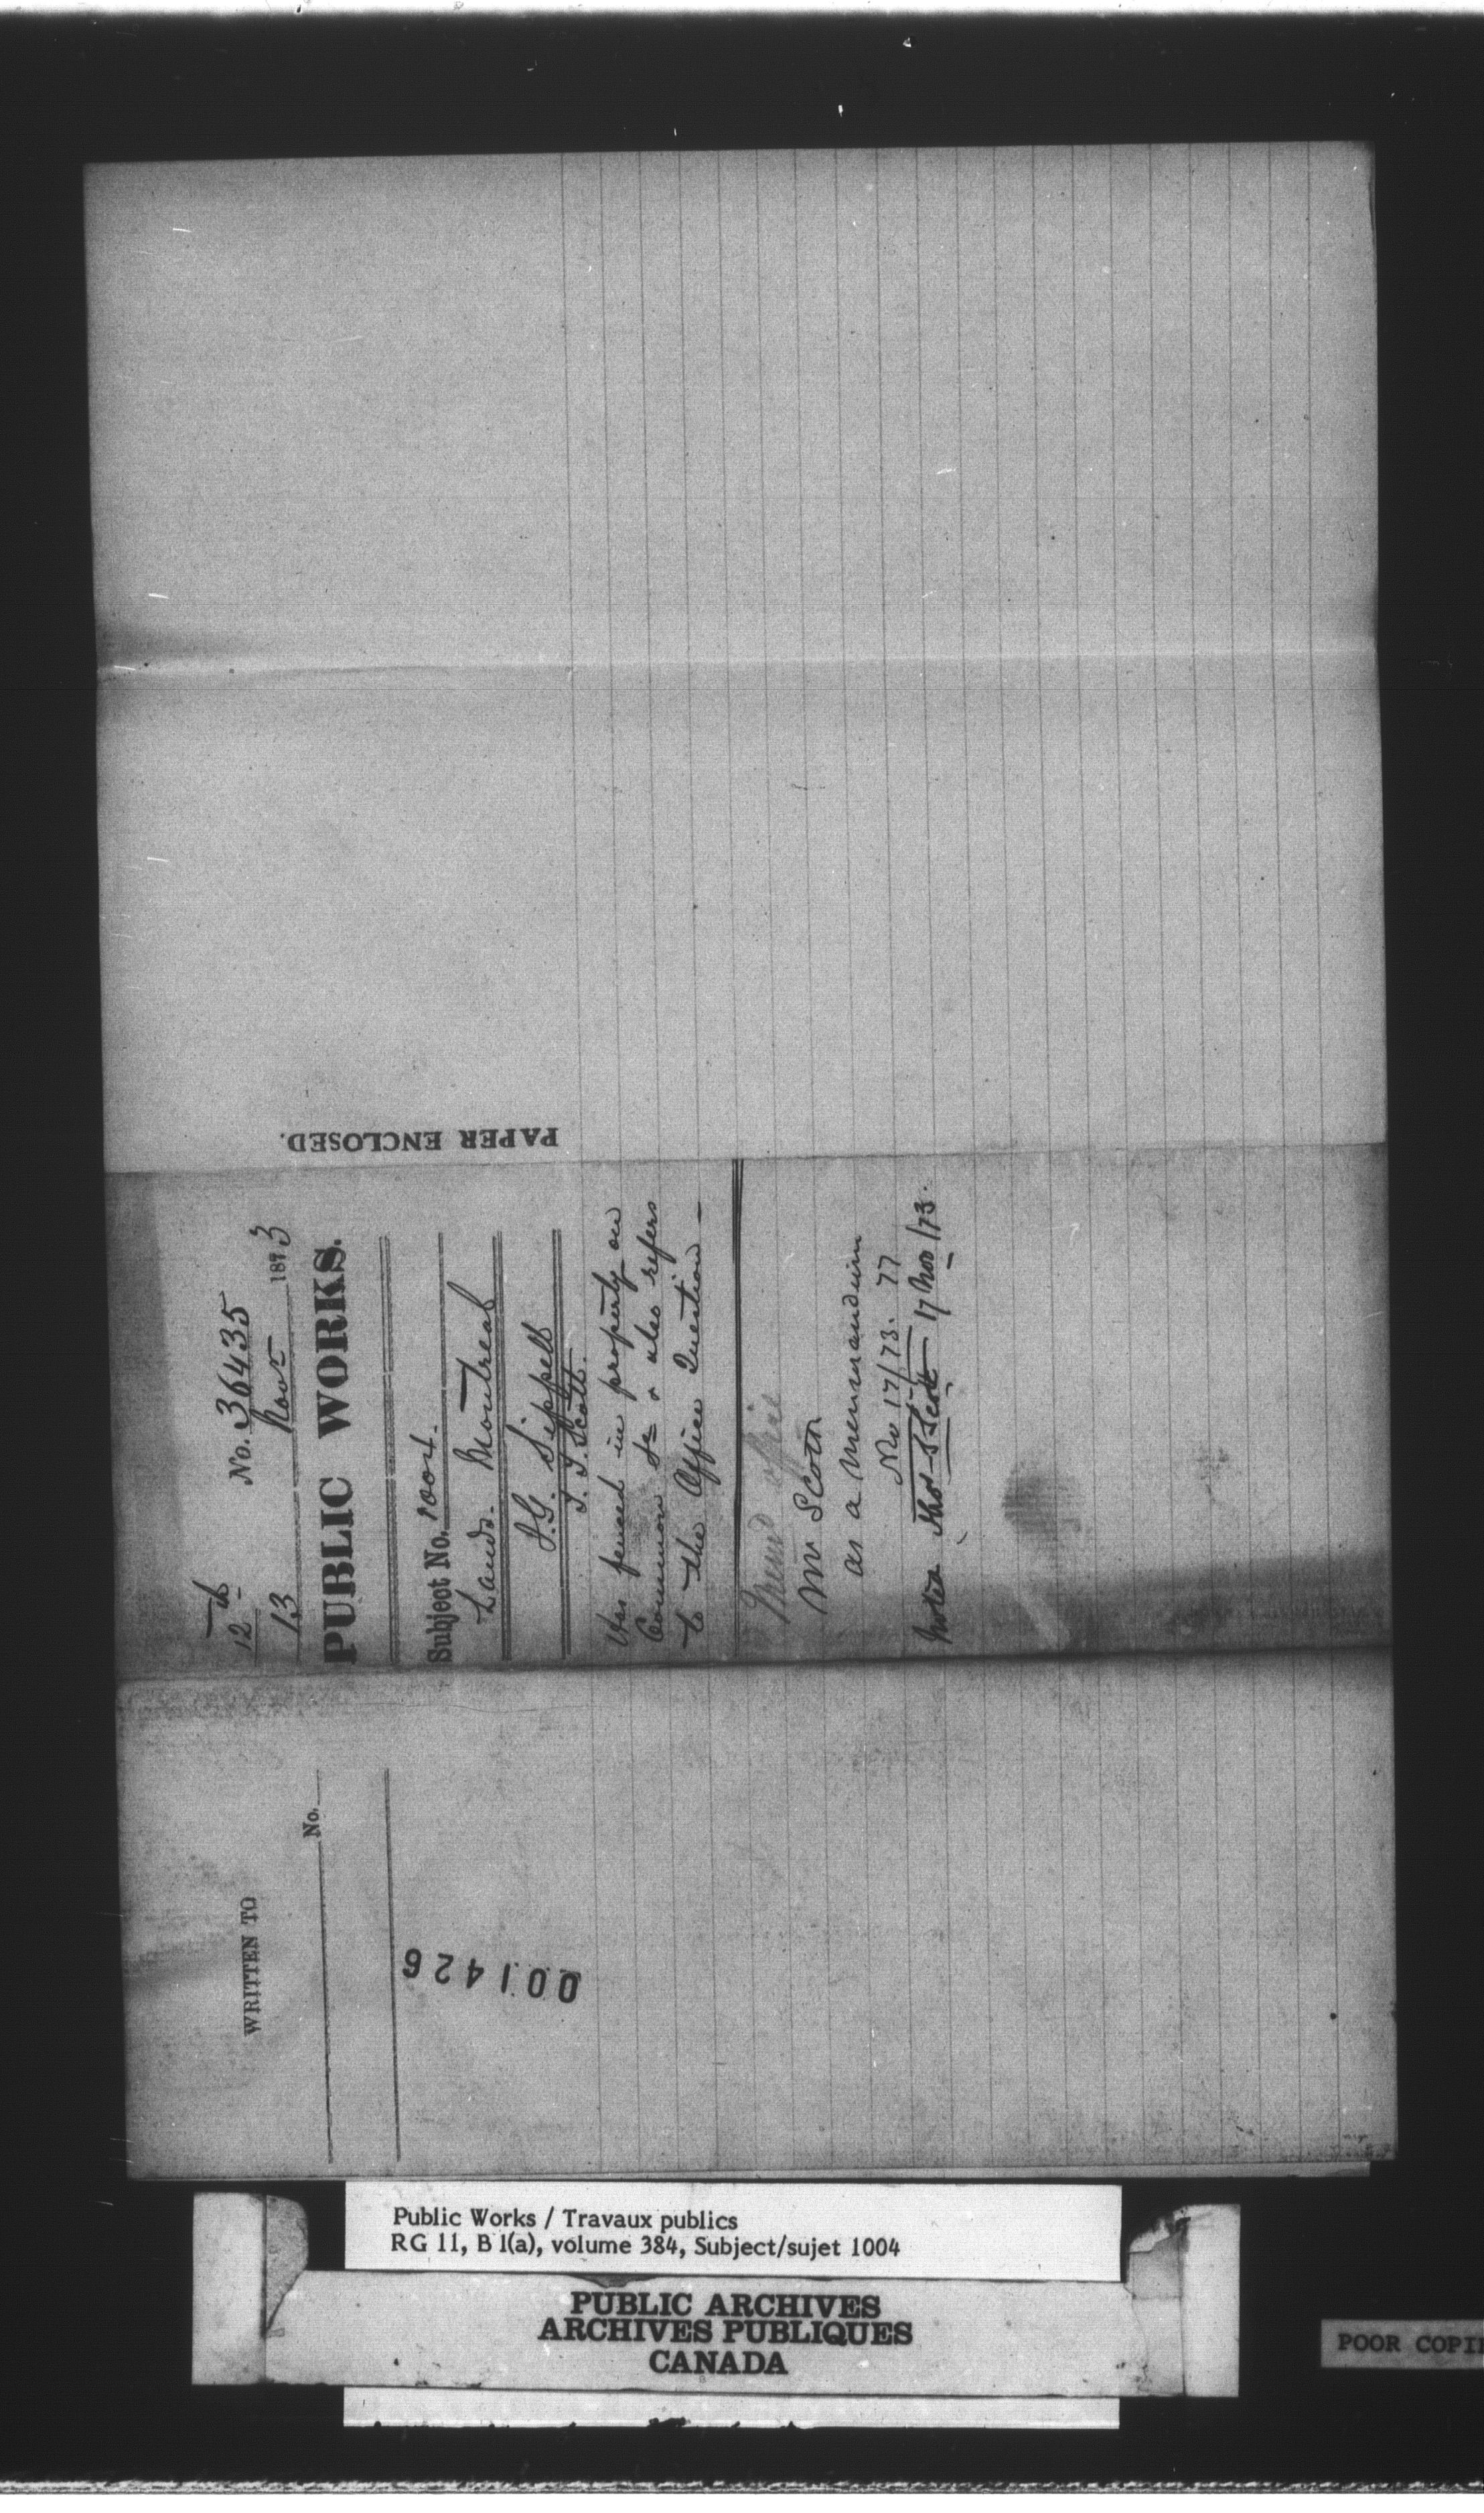 PAPER ENCLOSED.
12th
No. 36435
13 Novr 1873
PUBLIC WORKS.
Subject No. 1004.
Lands. Montreal
J.G. Sippell
T. S. Scott.
Has fenced in property on
Common &c & also refers
to the Office Question —
Mr Scott
as a memorandum
No 17/73. 77
Noted Thos S Scott 17 Nov /73.
WRITTEN TO
No.
001426
Public Works / Travaux publics
RG 11, B 1(a), volume 384, Subject/sujet 1004
PUBLIC ARCHIVES
ARCHIVES PUBLIQUES
CANADA
POOR COPI